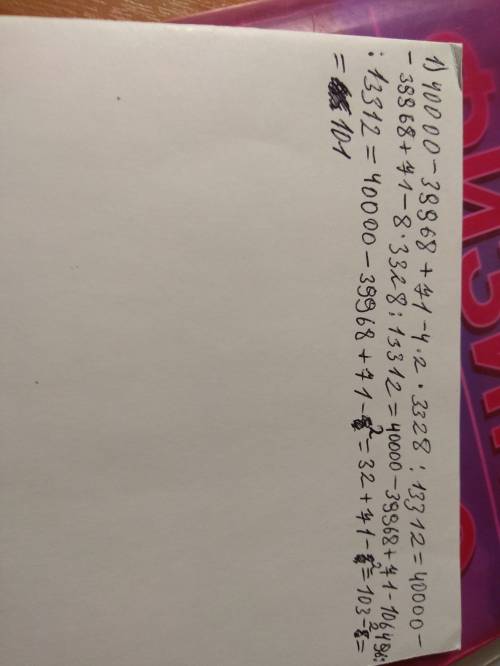 1) 40000 - 39968 + 71 - 4 · 2 · 3328 : 13312 = 40000 -
- 39968 + 71 - 8 · 3328 : 13312 = 40000 - 39968 + 71 - 106496 :
: 13312 = 40000 - 39968 + 71 - 2 = 32 + 71 - 2 = 103 - 2 =
= 101
ФИЗИ